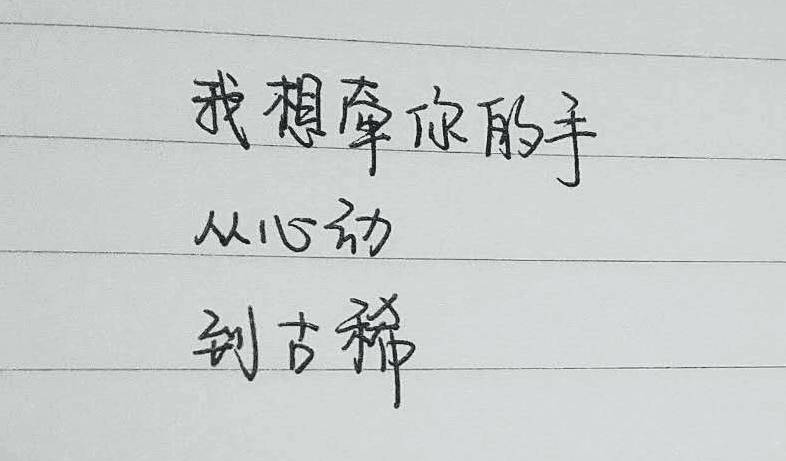 我想牵你的手
从心动
到古稀